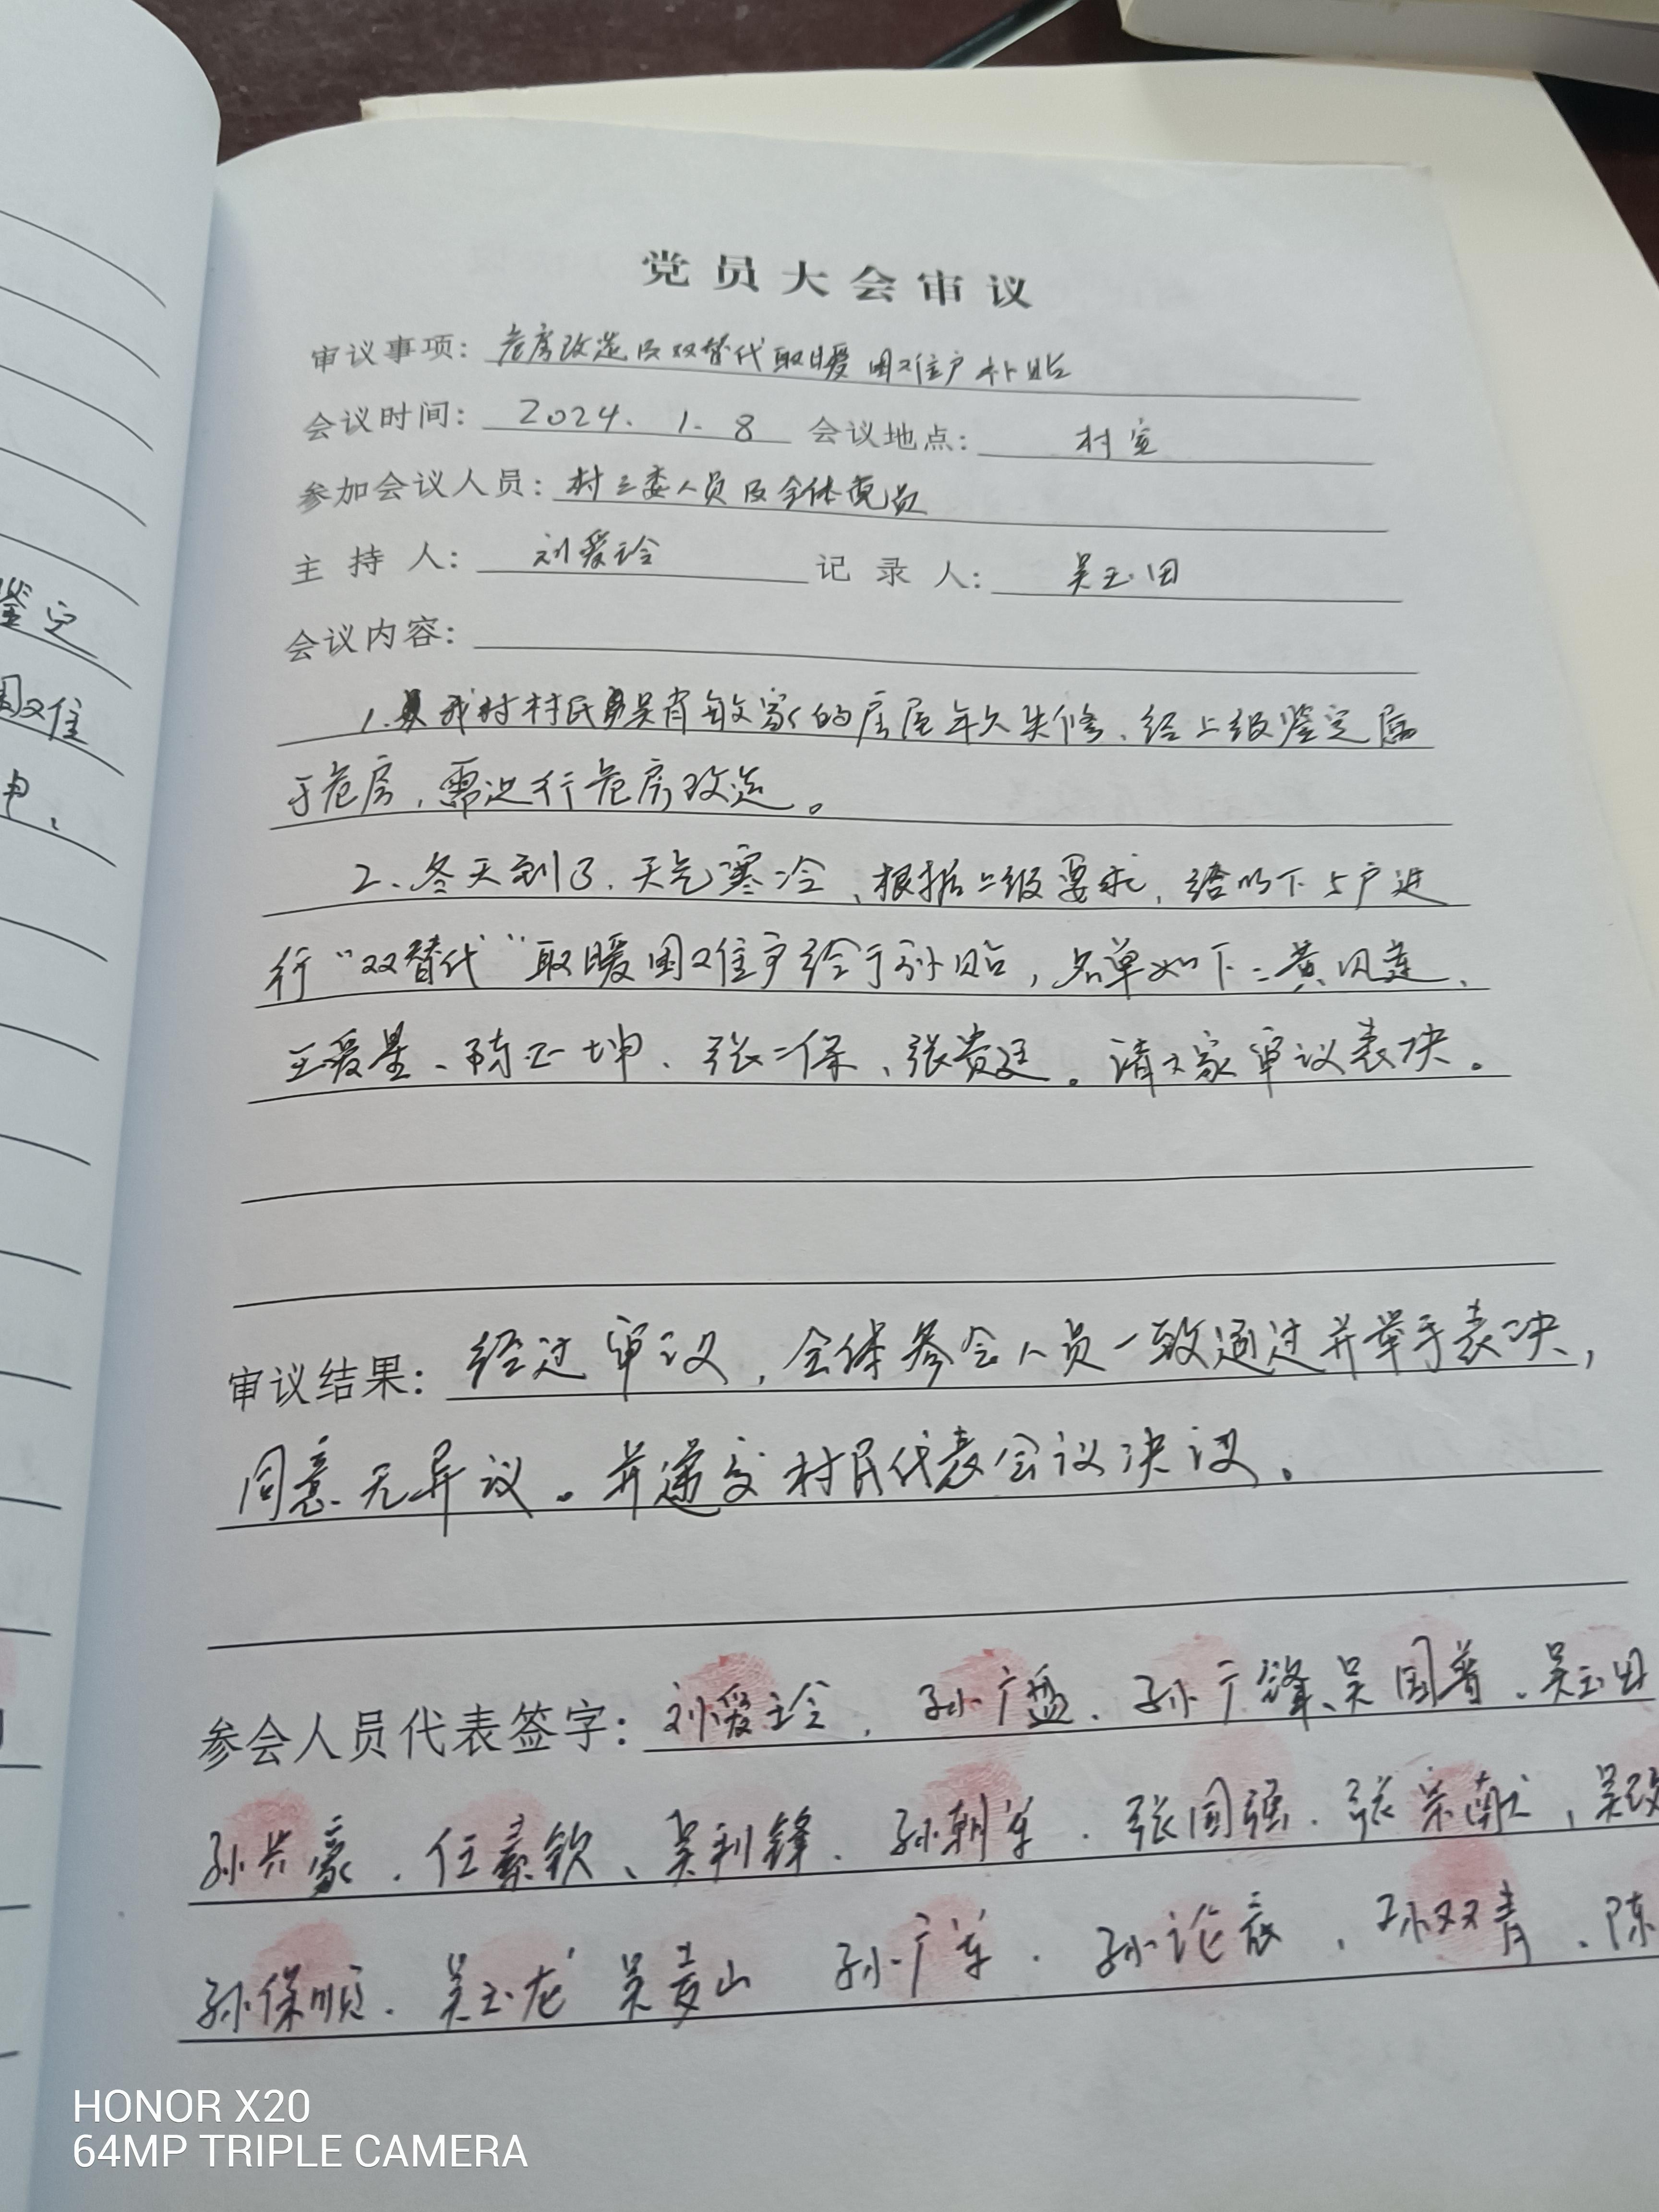 鉴定
困难
申、
党员大会审议
审议事项：危房改造及双替代取暖困难户补贴
会议时间：2024.1.8 会议地点：村室
参加会议人员：村三委人员及全体党员
主持人：刘爱玲 记录人：吴玉田
会议内容：
1.我村村民吴肖敏家的房屋年久失修、经上级鉴定属
于危房，需进行危房改造。
2、冬天到了、天气寒冷、根据上级要求，给以下5户进
行“双替代”取暖困难户给于补贴，名单如下：黄凤莲、
王爱星、陈正坤、张二保、张贵廷。请大家审议表决。
审议结果：经过审议，全体参会人员一致通过并举手表决，
同意无异议。并递交村民代表会议决议。
参会人员代表签字：刘爱玲、孙广盈、孙广锋、吴国普、吴玉田
孙共豪、任素钦、吴利锋、孙朝军、张国强、张荣献、吴改
孙保顺、吴玉龙 吴麦山 孙广军、孙论底、孙双青、陈
HONOR X20
64MP TRIPLE CAMERA